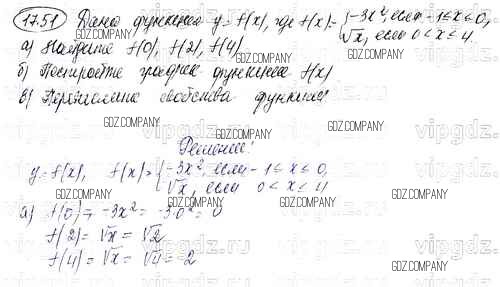 17.51) Дана функция y=f(x), где f(x)= {-3x², если -1≤x≤0,
√x, если 0<x≤4.
а) Найдите f(0), f(2), f(4)
б) Постройте график функции f(x)
в) Перечислить свойства функции
Решение!
y=f(x), f(x)= {-3x², если -1≤x≤0,
√x, если 0<x≤4
а) f(0)= -3x² = -3·0² = 0
f(2)= √x = √2
f(4)= √x = √4 = 2
GDZ.COMPANY
vipgdz.ru